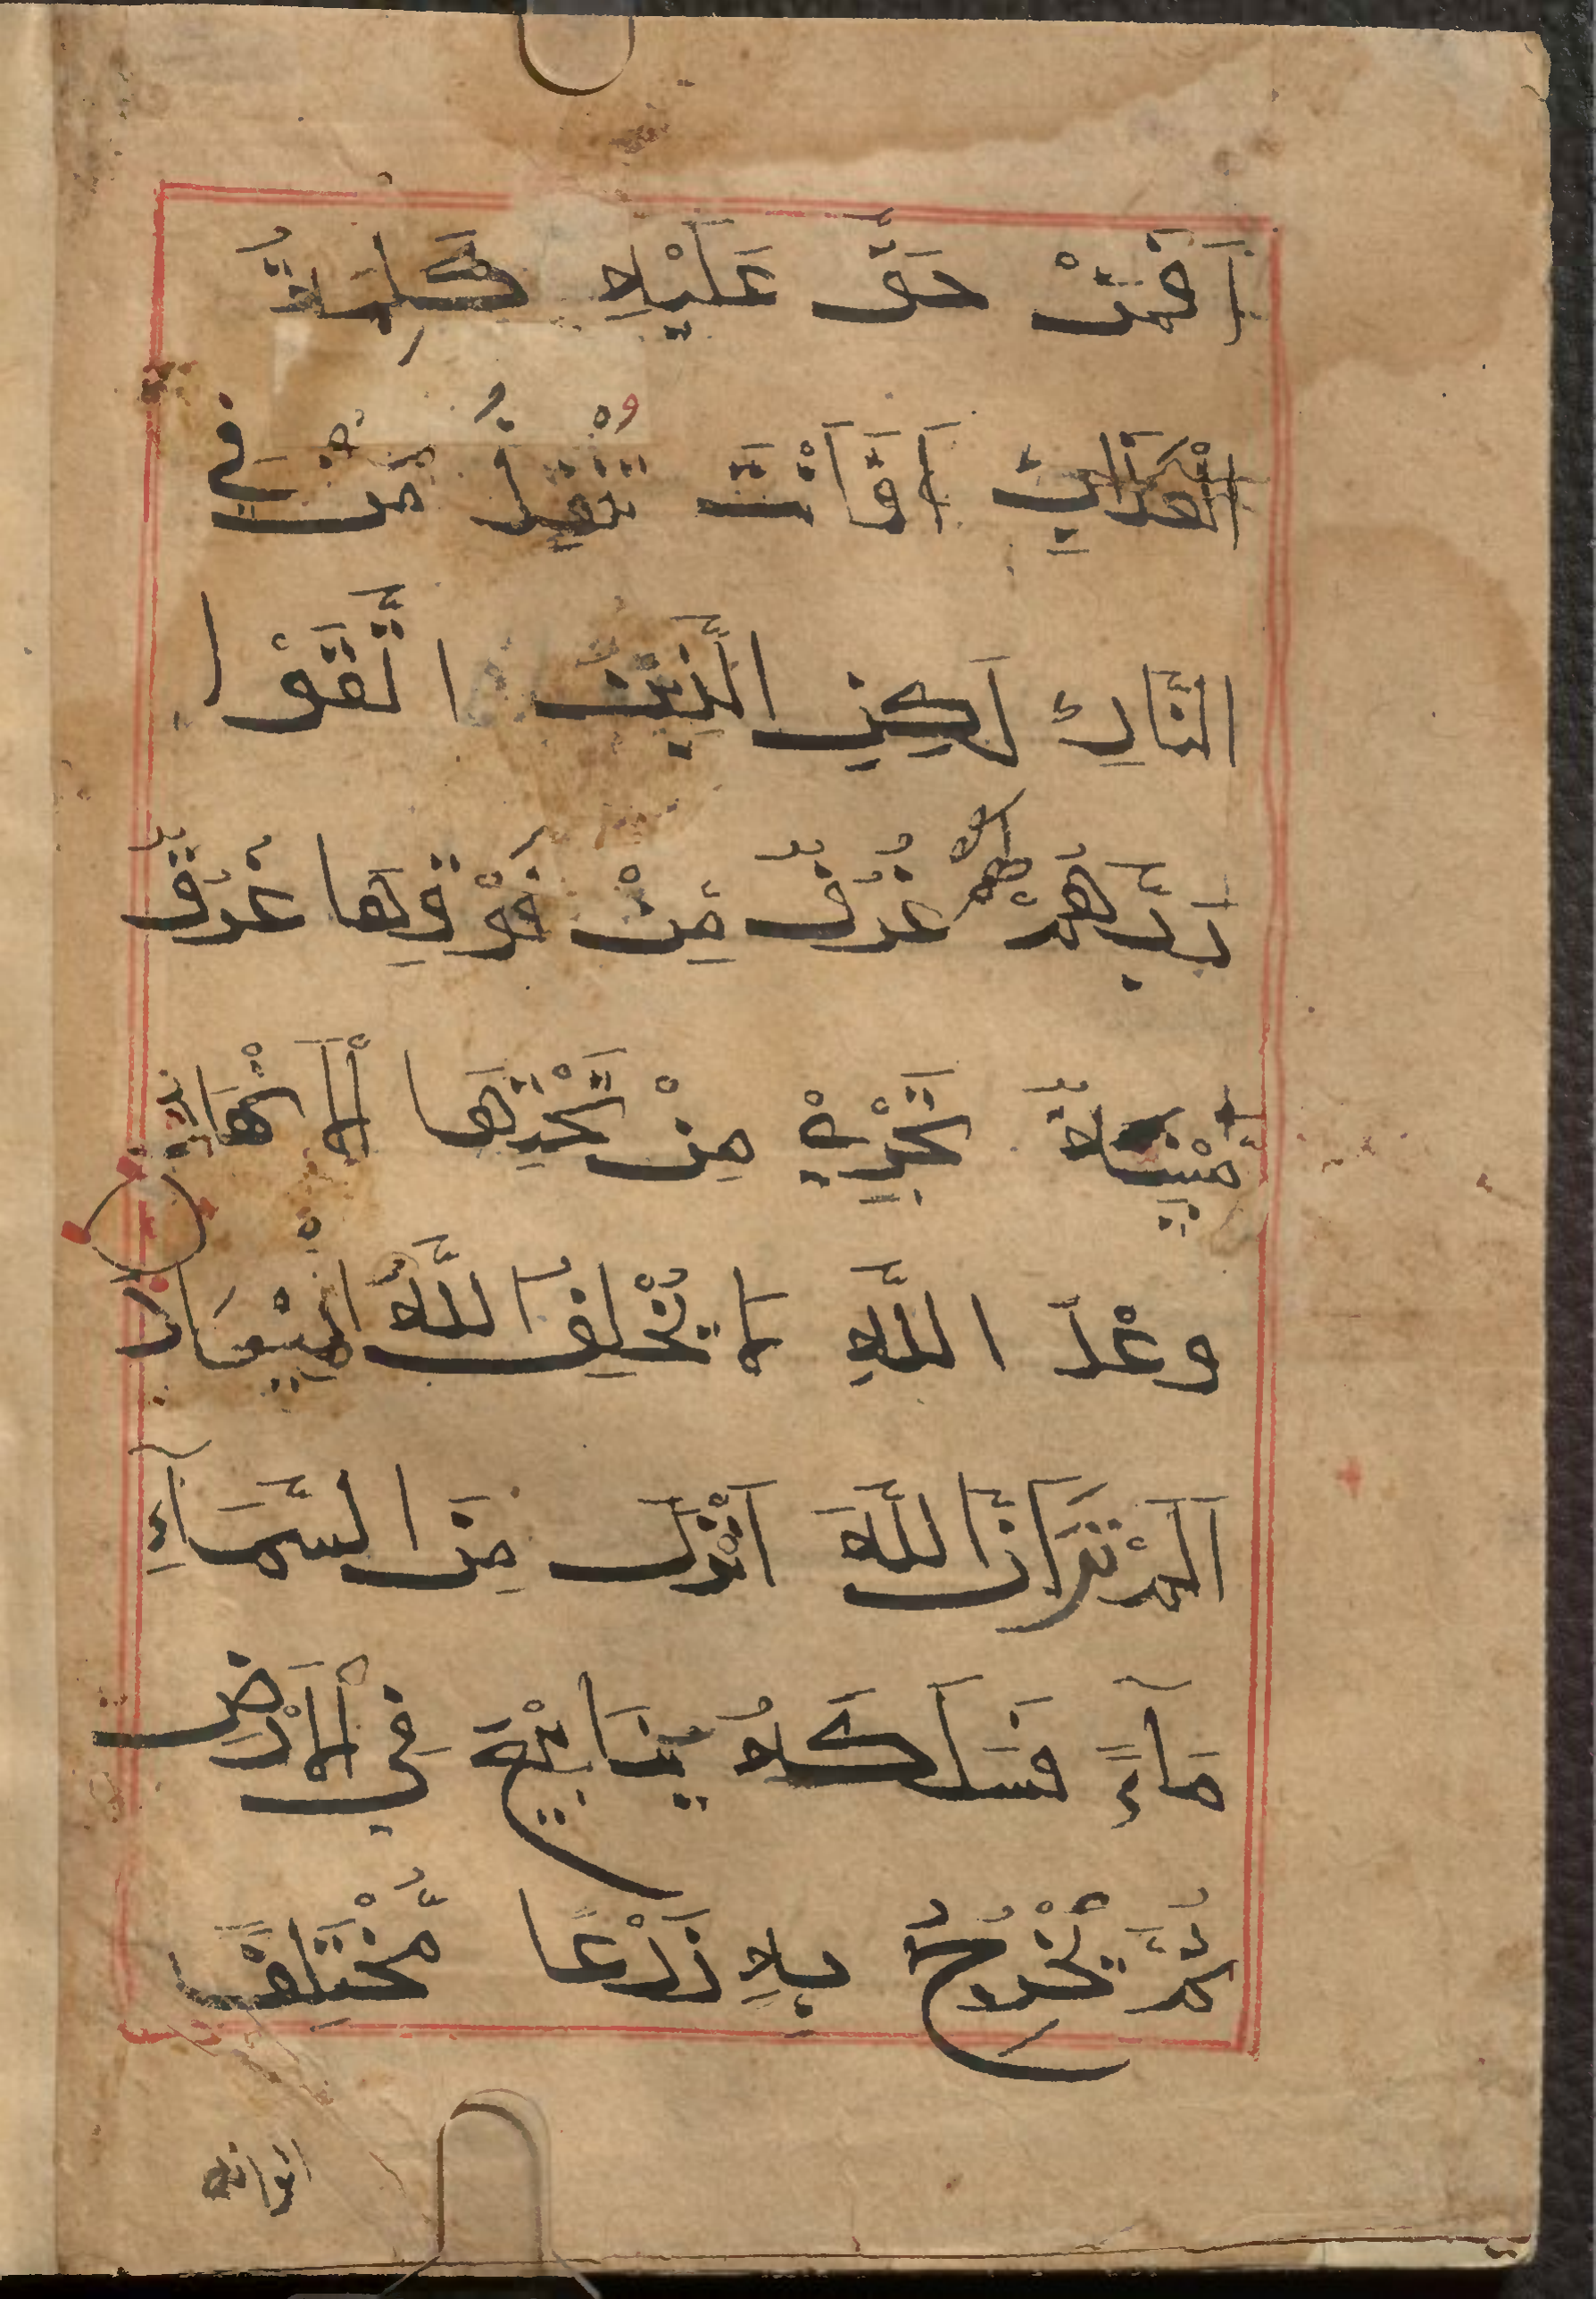 اَفَمَنْ حَقَّ عَلَيْهِ كَلِمَةُ
الْعَذَابِ اَفَاَنْتَ تُنْقِذُ مَنْ فِي
النَّارِ لَكِنِ الَّذِينَ اتَّقَوْا
رَبَّهُمْ لَهُمْ غُرَفٌ مِنْ فَوْقِهَا غُرَفٌ
مَبْنِيَّةٌ تَجْرِي مِنْ تَحْتِهَا الْاَنْهَارُ
وَعْدَ اللَّهِ لَا يُخْلِفُ اللَّهُ الْمِيعَادَ
اَلَمْ تَرَ اَنَّ اللَّهَ اَنْزَلَ مِنَ السَّمَآءِ
مَآءً فَسَلَكَهُ يَنَابِيعَ فِي الْاَرْضِ
ثُمَّ يُخْرِجُ بِهِ زَرْعًا مُّخْتَلِفًا
الوانه